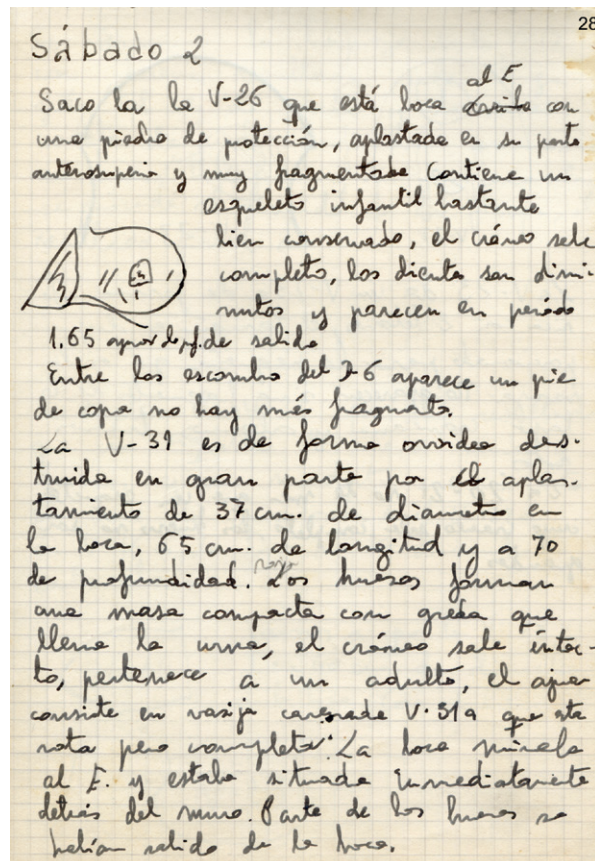 28
Sábado 2
al E
Saco la la V-26 que está boca arriba con
una piedra de protección, aplastada en su parte
anterosuperior y muy fragmentada Contiene un
esqueleto infantil bastante
bien conservado, el cráneo sale
completo, los dientes son dimi-
nutos y parecen en periódo
1,65 aprox de pf. de salida
Entre los escombros del D-6 aparece un pie
de copa no hay más fragmentos.
La V-31 es de forma ovoidea des-
truida en gran parte por el aplas-
tamiento de 37 cm. de diametro en
la boca, 65 cm. de longitud y a 70
de profundidad. Los huesos forman
una masa compacta con greda que
llena la urna, el cráneo sale intac-
to, pertenece a un adulto, el ajuar
consiste en vasija carenada V-31a que sta
rota pero completa. La boca miraba
al E. y estaba situada inmediatamente
detrás del muro. Parte de los huesos se
habían salido de la boca.